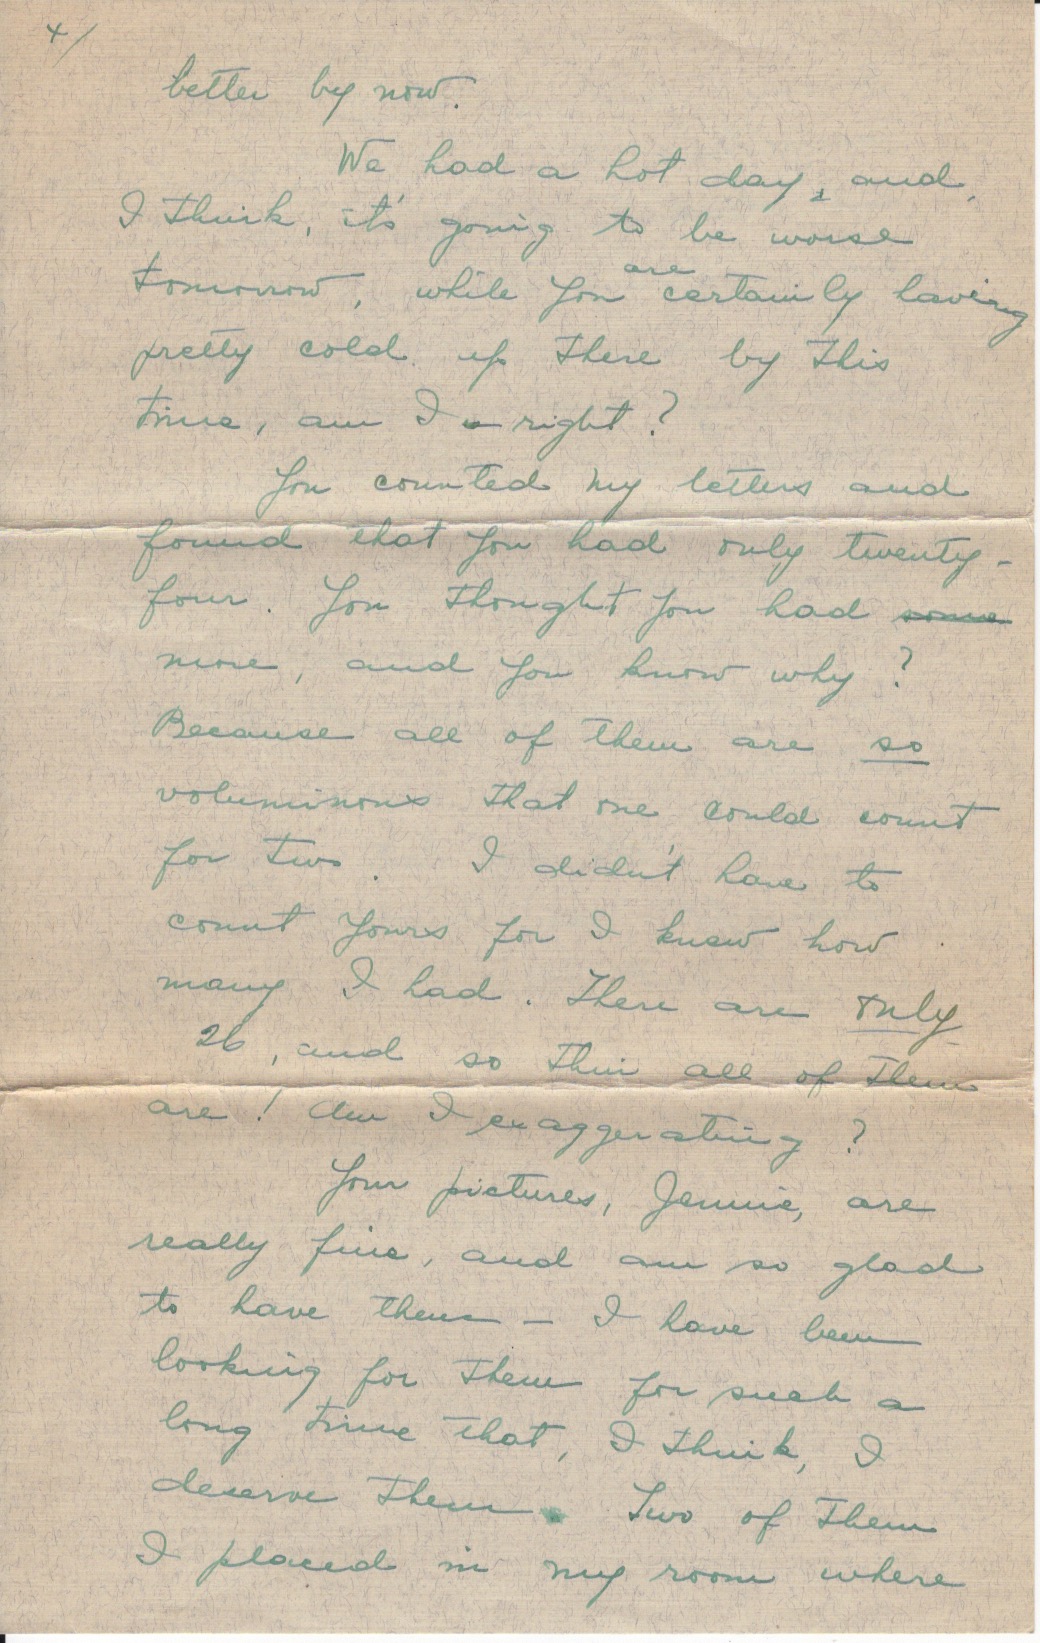 4/
better by now.
We had a hot day, and,
I think, it's going to be worse
tomorrow, while you are certainly having
pretty cold up there by this
time, am I right?
You counted my letters and
found that you had only twenty-
four. You thought you had some
more, and you know why?
Because all of them are so
voluminous that one could count
for two. I didn't have to
count yours for I knew how
many I had. There are only
26, and so thin all of them
are! Am I exaggerating?
Your pictures, Jennie, are
really fine, and am so glad
to have them – I have been
looking for them for such a
long time that, I think, I
deserve them. Two of them
I placed in my room where